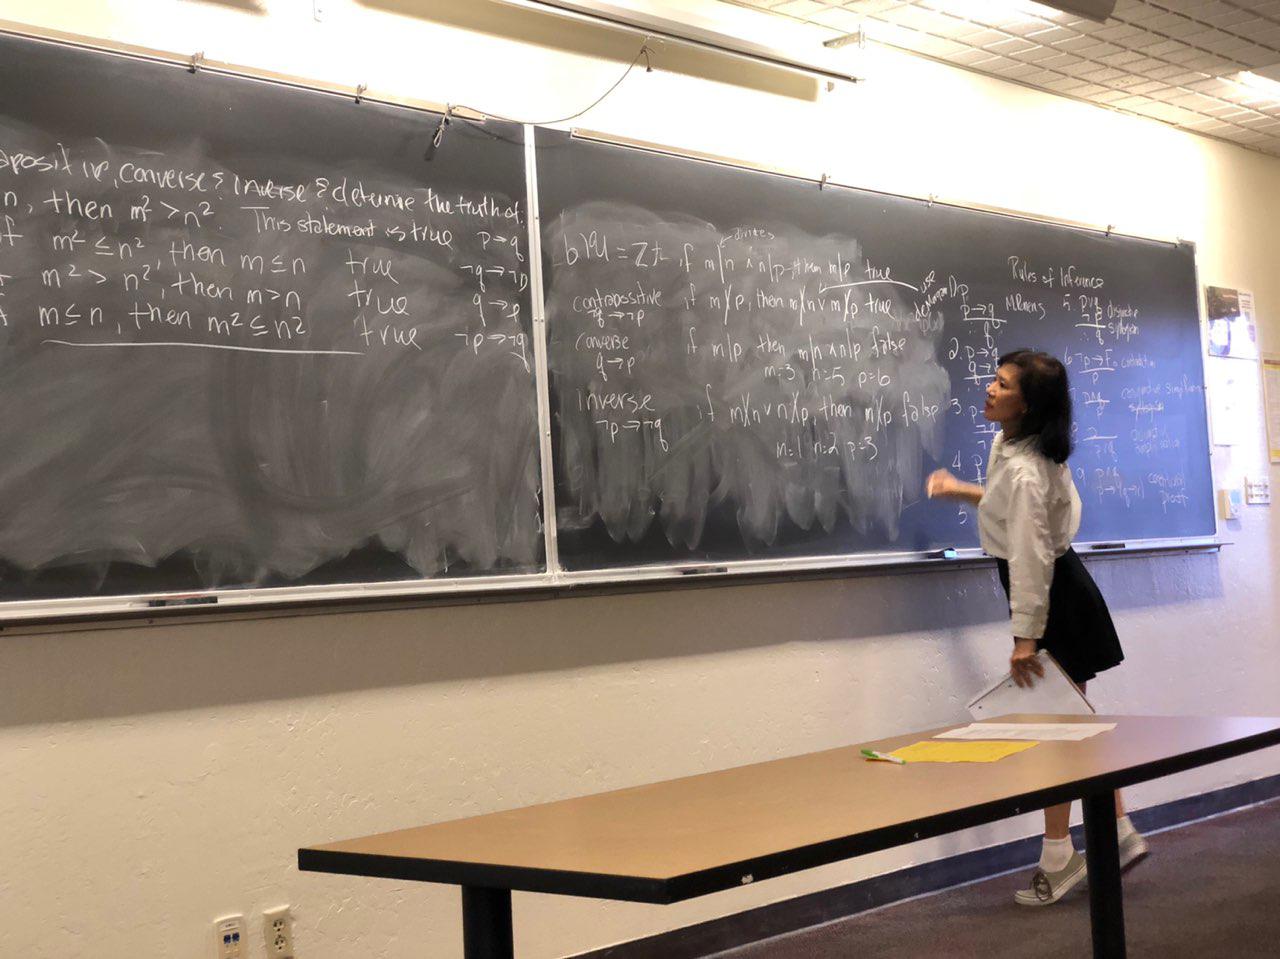 positive, converse & inverse & determine the truth of:
n, then m² > n². This statement is true p→q
f m² ≤ n², then m ≤ n true ¬q→¬p
m² > n², then m > n true q→p
m ≤ n, then m² ≤ n² true ¬p→¬q
b) U = Z+ if m|n ∧ n|p then m|p true
divides
contrapositive if m∤p, then m∤n ∨ m∤p true
¬q→¬p
use
converse if m|p then m|n ∧ n|p false
q→p
m=3 n=5 p=6
inverse if m∤n ∨ n∤p then m∤p false
¬p→¬q
m=1 n=2 p=3
Rules of Inference
1. p
p→q
∴ q
2. p→q
q→
3. p→
4. p
5
5. p∨q disjunctive
¬p syllogism
∴ q
6. ¬p→F contradiction
p
p∧q conjunctive
p
p∨q
9. p∧q conditional
p→(q→r) proof